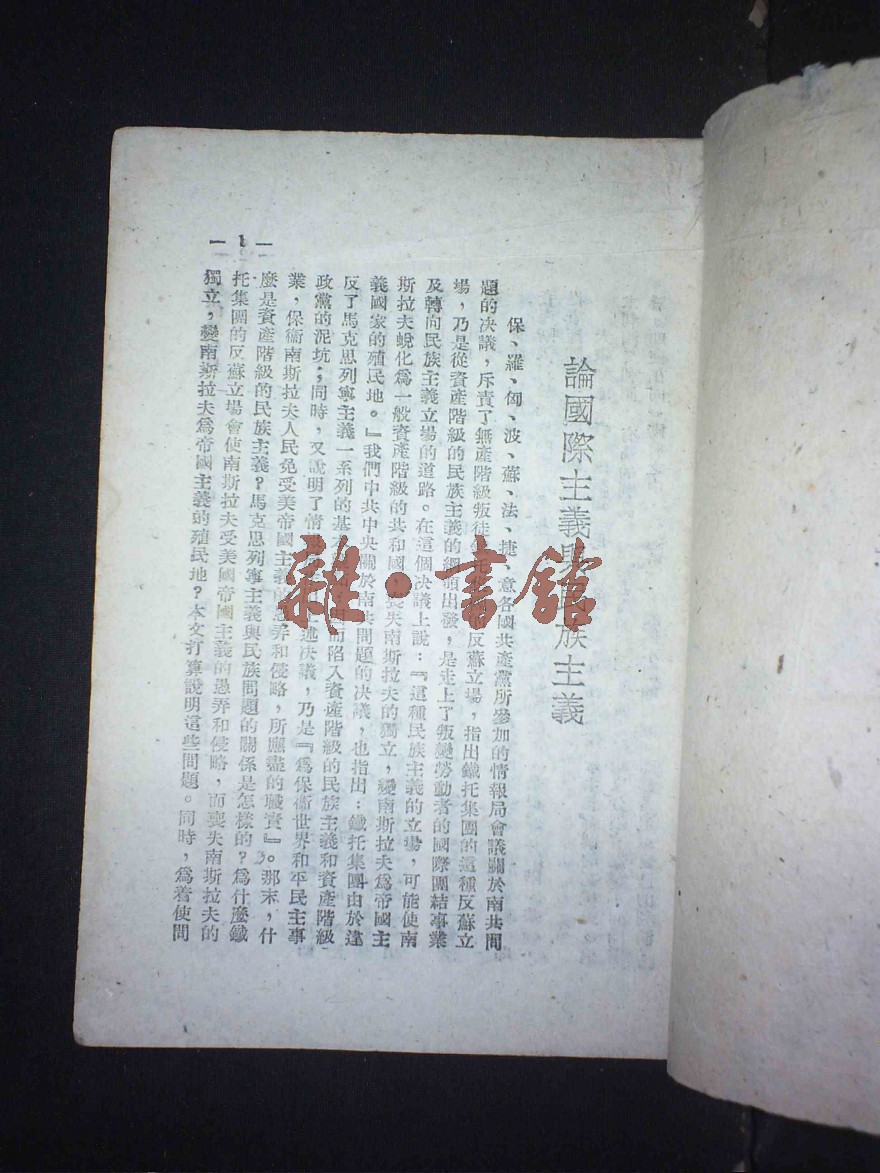 論國際主義與民族主義
保、羅、匈、波、蘇、法、捷、意各國共產黨所參加的情報局會議關於南共問
題的决議，斥責了無產階級叛徒 反蘇立場，指出鐵托集團的這種反蘇立
場，乃是從資產階級的民族主義的綱領出發，是走上了叛變勞動者的國際團結事業
及轉向民族主義立場的道路。在這個决議上說：『這種民族主義的立場，可能使南
斯拉夫蛻化爲一般資產階級的共和國，喪失南斯拉夫的獨立，變南斯拉夫爲帝國主
義國家的殖民地。』我們中共中央關於南共問題的决議，也指出：鐵托集團由於違
反了馬克思列寧主義一系列的基 而陷入資產階級的民族主義和資產階級
政黨的泥坑；同時，又說明了情 述决議，乃是『爲保衛世界和平民主事
業，保衛南斯拉夫人民免受美帝國主義的愚弄和侵略，所應盡的職責』。那末，什
麼是資產階級的民族主義？馬克思列寧主義與民族問題的關係是怎樣的？爲什麼鐵
托集團的反蘇立場會使南斯拉夫受美國帝國主義的愚弄和侵略，而喪失南斯拉夫的
獨立，變南斯拉夫爲帝國主義的殖民地？本文打算說明這些問題。同時，爲着使問
— 1 —
雜·書館